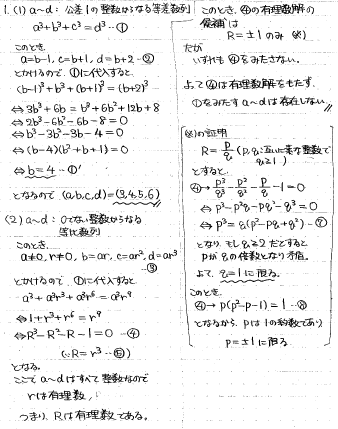 1. (1) a~d: 公差1の整数からなる等差数列
a³+b³+c³=d³ …①
このとき
a=b-1, c=b+1, d=b+2 …②
とかけるので ①に代入すると
(b-1)³+b³+(b+1)³=(b+2)³
⇔ 3b³+6b = b³+6b²+12b+8
⇔ 2b³-6b²-6b-8=0
⇔ b³-3b²-3b-4=0
⇔ (b-4)(b²+b+1)=0
⇔ b=4 …①'
となるので (a,b,c,d)=(3,4,5,6)
(2) a~d: 0でない整数からなる
等比数列
このとき
a≠0, r≠0, b=ar, c=ar², d=ar³
…③
とかけるので ①に代入すると
a³+a³r³+a³r⁶=a³r⁹
⇔ 1+r³+r⁶=r⁹
⇔ R³-R²-R-1=0 …④
(∵R=r³ …⑤)
となる。
ここで a~dはすべて整数なので
rは有理数,
つまり、Rは有理数である。
このとき、④の有理数解の
候補は
R=±1のみ (※)
だが
いずれも④をみたさない。
よって④は有理数解をもたず、
①をみたすa~dは存在しない
(※)の証明
R=p/q (p,q:互いに素な整数で
q≧1)
とすると
④→ p³/q³-p²/q²-p/q-1=0
⇔ p³-p²q-pq²-q³=0
⇔ p³=q(p²+pq+q²) …⑦
となり、もしq≧2だとすると
pがqの倍数となり矛盾。
よって、q=1に限る。
このとき
④→ p(p²-p-1)=1 …⑧
となるから、pは1の約数であり
p=±1に限る